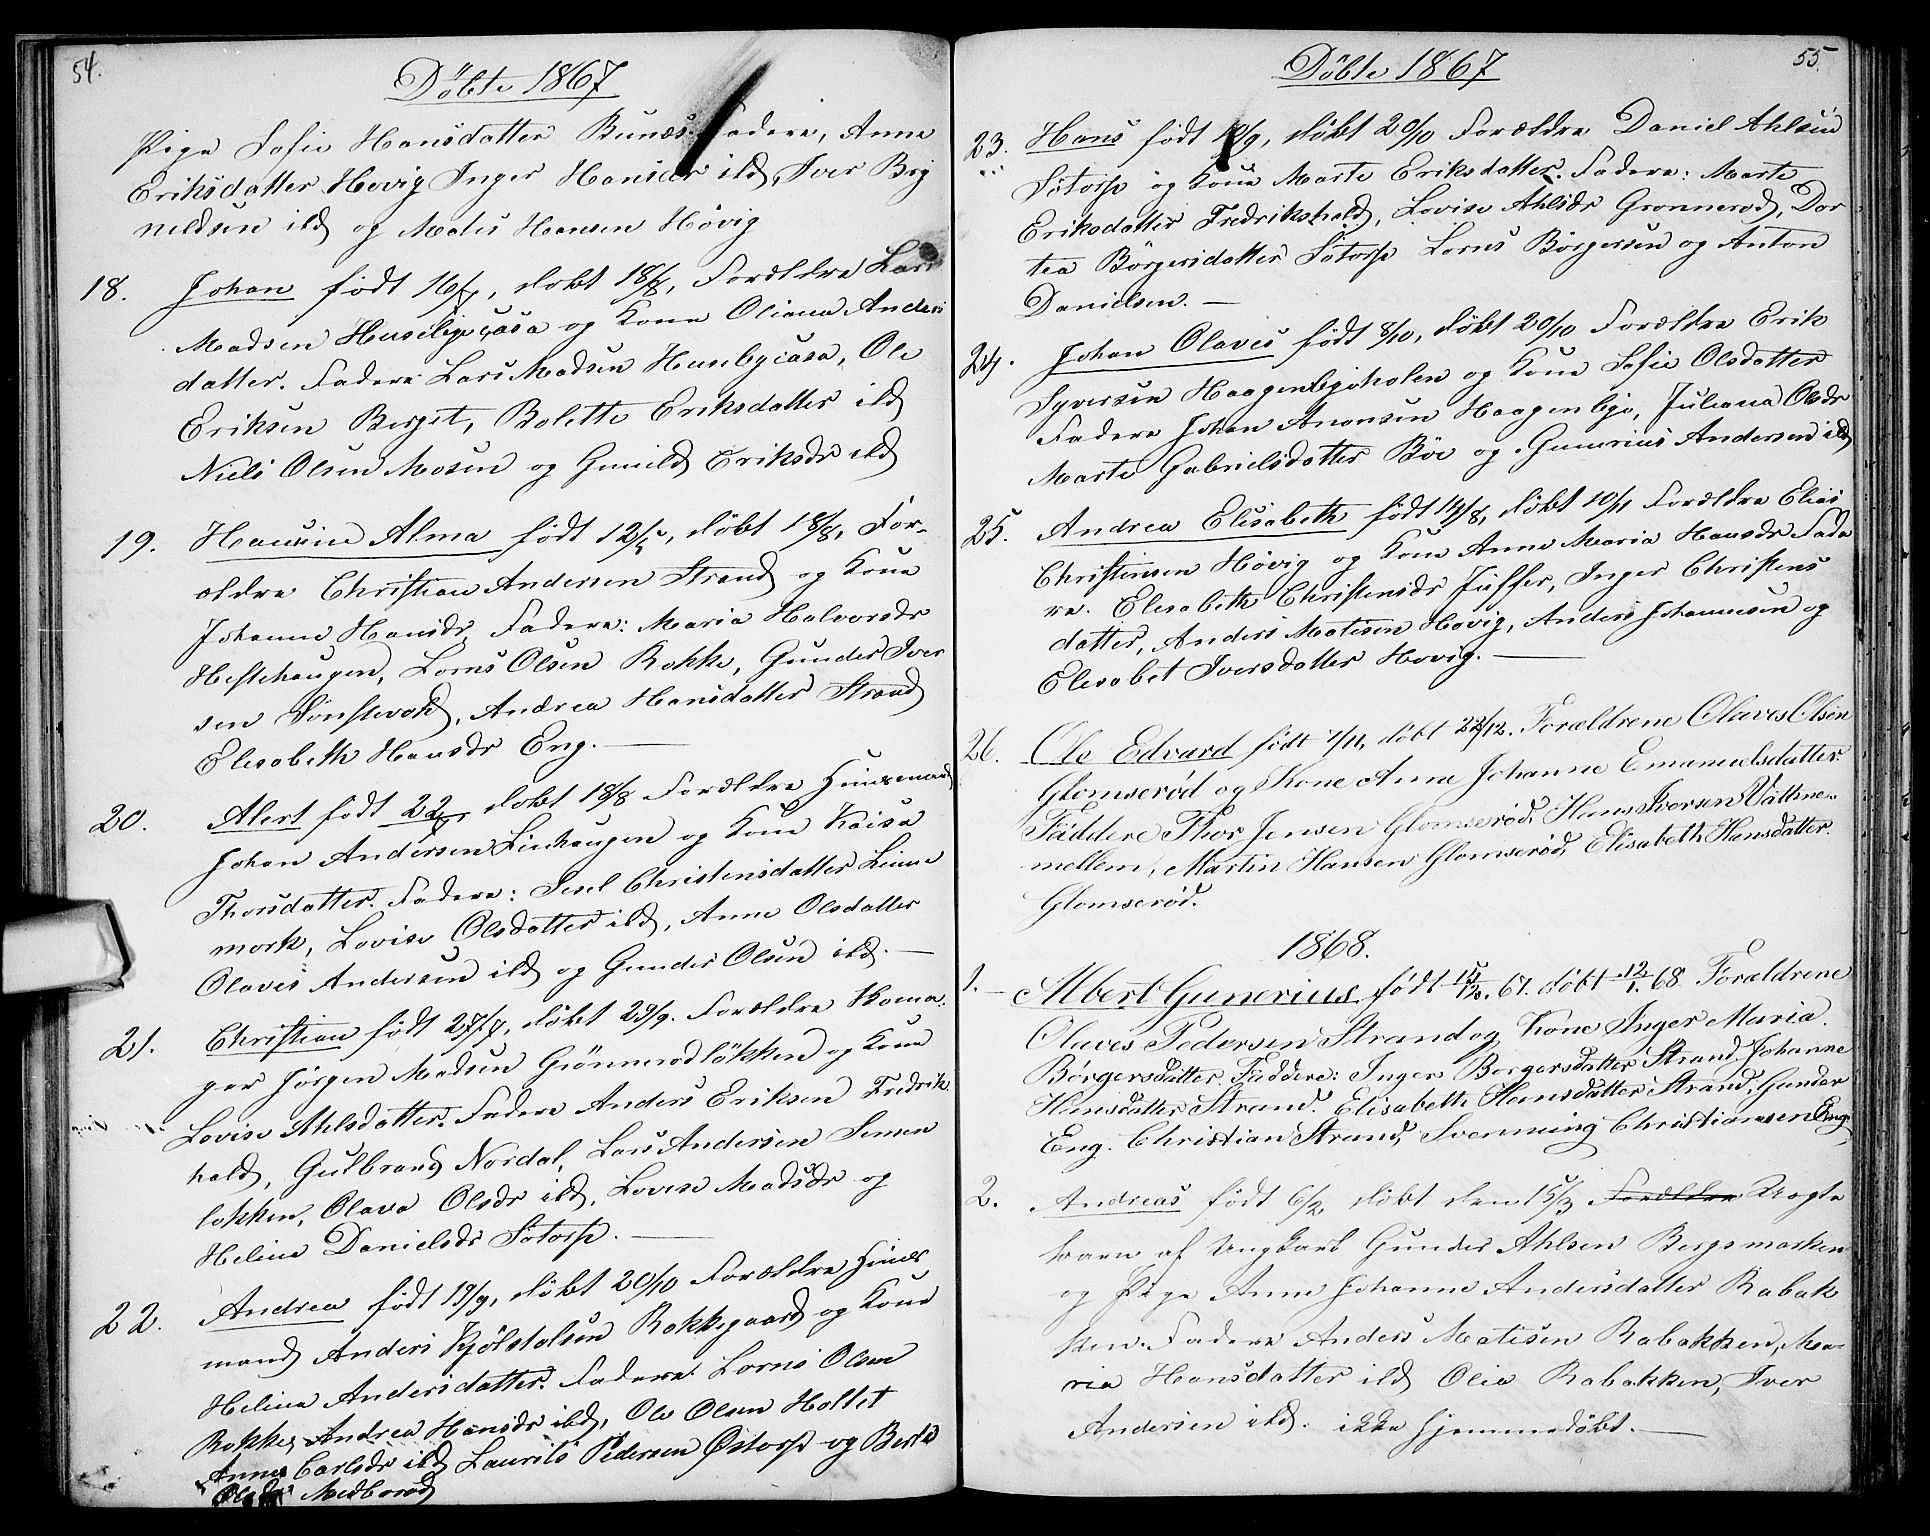 54.
Döbte 1867
Pige Sofie Hansdatter Bunæs. Fadere, Anne
Eriksdatter Hovig Inger Hansdr ild, Iver Bry
nildsen ild og Matis Hansen Hövig
18. Johan födt 16/7, döbt 18/8, Forældre Lars
Madsen Husebyecasa og Kone Oliane Anders
datter. Fadere Lars Madsen Husebycasa, Ole
Eriksen Berget, Bolette Eriksdatter ild
Niels Olsen Mosen og Gunild Eriksdr ild
19. Hansine Alma födt 12/5, döbt 18/8, For-
ældre Christian Andersen Strand og Kone
Johanne Hansdr Fadere: Maria Halvorsdr
Hestehaugen, Lorns Olsen Rokke, Gunder Iver
sen Tönslevold, Andrea Hansdatter Strand
Elisabeth Hansdr Eng. —
20. Alert födt 22/6, döbt 18/8 Forældre Huusmand
Johan Andersen Liehaugen og Kone Kaisa
Thorsdatter. Fadere: Isel Christensdatter Linne
mork, Lovise Olsdatter ild, Anne Olsdatter
Olaves Andersen ild og Gunder Olsen ild. —
21. Christian födt 27/7, döbt 29/9. Forældre Koma
ger Jörgen Madsen Grönnerödlökken og Kone
Lovise Ahlsdatter. Fadere Anders Eriksen Fredrik
hald, Gulbrand Nordal, Lars Andersen Semen
lokken, Olava Olsdr ild, Lovise Madsdr og
Heline Danielsdr Sötorp. —
22. Andrea födt 19/9, döbt 20/10 Forældre Huus
mand Anders Kjölstolsen Rokkegaard og Kone
Heline Andersdatter. Fadere: Lorns Olsen
Rokke, Andrea Hansdr ild, Ole Olsen Holtet
Anne Carlsdr ild Laurits Pedersen Östorp og Berte
Olsdr Medböröd
55.
Döbte 1867
23. Hans födt /9, döbt 20/10 Forældre Daniel Ahlsen
Sötorp og Kone Marte Eriksdatter. Fadere: Marte
Eriksdatter Fredrikshald, Lovise Ahlsdr Gronneröd, Dor
tea Börgersdatter Sötorp Lorns Börgersen og Anton
Danielsen. —
24. Johan Olaves födt 8/10, döbt 20/10 Forældre Erik
Syversen Haagenbyeholen og Kone Sofie Olsdatter
Fadere Johan Anonsen Haagenbye, Juliana Olsdr
Marte Gabrielsdatter Böe og Gunerius Andersen ild
25. Andrea Elisabeth födt 14/8, döbt 10/11 Forældre Elias
Christensen Hövig og Kone Anne Maria Hansdr Fade
re. Elisabeth Christensdr Juffer, Inger Christens
datter, Anders Matisen Hovig, Anders Johannesen og
Elisabet Iversdatter Hovig. —
26. Ole Edvard födt 7/11, döbt 22/12. Forældrene Olaves Olsen
Glomseröd og Kone Anne Johanne Emanuelsdatter.
Faddere Thor Jensen Glomseröd, Hans Iversen Vatne-
mellem, Martin Hansen Glomseröd, Elisabeth Hansdatter
Glomseröd.
1868.
1. — Albert Gunerius födt 15/12. 67. döbt 12/1. 68 Forældrene
Olaves Pedersen Strand og Kone Inger Maria
Börgersdatter. Faddere: Inger Borgersdatter Strand, Johanne
Hansdatter Strand. Elisabeth Hansdatter Strand, Gunder
Eng. Christian Strand, Svenning Christiansen Eng
2. Andreas födt 6/2, döbt den 15/3 Forældre Uægte
barn af Ungkarl Gunder Ahlsen Bergsmarken
og Pige Anne Johanne Andersdatter Rabak
ken. Fadere Anders Matisen Rabakken, Ma-
ria Hansdatter ild Olia Rabakken, Iver
Andersen ild. ikke hjemmedöbt. —